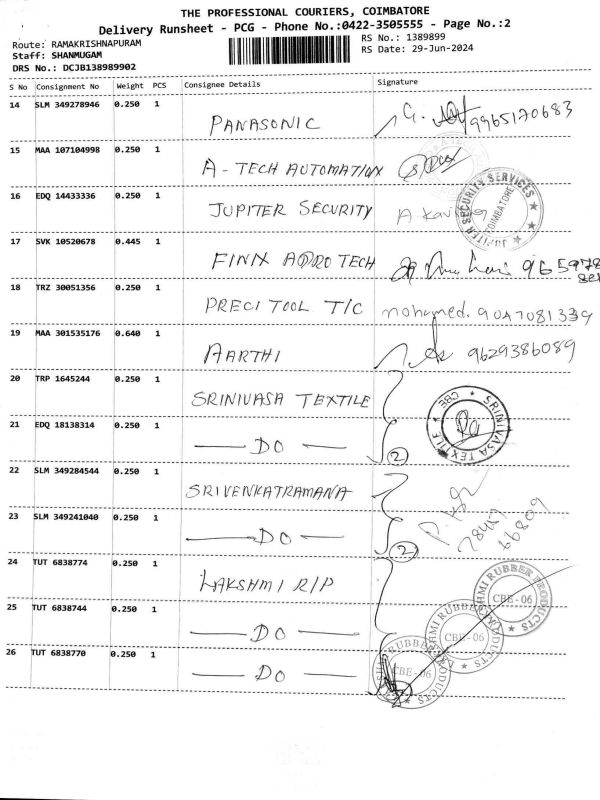 THE PROFESSIONAL COURIERS, COIMBATORE
Delivery Runsheet - PCG - Phone No.:0422-3505555 - Page No.:2
Route: RAMAKRISHNAPURAM
Staff: SHANMUGAM
DRS No.: DCJB138989902
RS No.: 1389899
RS Date: 29-Jun-2024
S No Consignment No Weight PCS Consignee Details Signature
14 SLM 349278946 0.250 1 PANASONIC G. 9965170683
15 MAA 107104998 0.250 1 A-TECH AUTOMATION
16 EDQ 14433336 0.250 1 JUPITER SECURITY
JUPITER SECURITY SERVICES COIMBATORE
17 SVK 10520678 0.445 1 FINN AGRO TECH
18 TRZ 30051356 0.250 1 PRECI TOOL T/C mohamed. 9047081339
19 MAA 301535176 0.640 1 AARTHI 9629386089
20 TRP 1645244 0.250 1 SRINIVASA TEXTILE
SRINIVASA TEXTILE CBE
21 EDQ 18138314 0.250 1 DO 2
22 SLM 349284544 0.250 1 SRIVENKATRAMANA
23 SLM 349241040 0.250 1 DO 2
24 TUT 6838774 0.250 1 LAKSHMI R/P
RUBBER PRODUCTS CBE-06
25 TUT 6838744 0.250 1 DO
RUBBER PRODUCTS CBE-06
26 TUT 6838770 0.250 1 DO
RUBBER PRODUCTS CBE-06